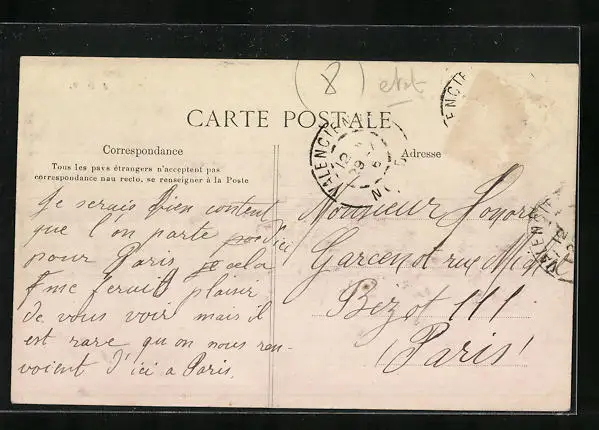 (8) etat
CARTE POSTALE
Correspondance
Tous les pays étrangers n'acceptent pas
correspondance nau recto, se renseigner à la Poste
Je serais bien content
que l'on parte d'ici
pour Paris cela
me ferait plaisir
de vous voir mais il
est rare qu on nous ren-
voient d'ici a Paris.
Adresse
Monsieur Honoré
Garcenot rue Michel
Bizot 111
Paris
VALENCIEN
12
NORD
ENCIE
VALENCIE
12